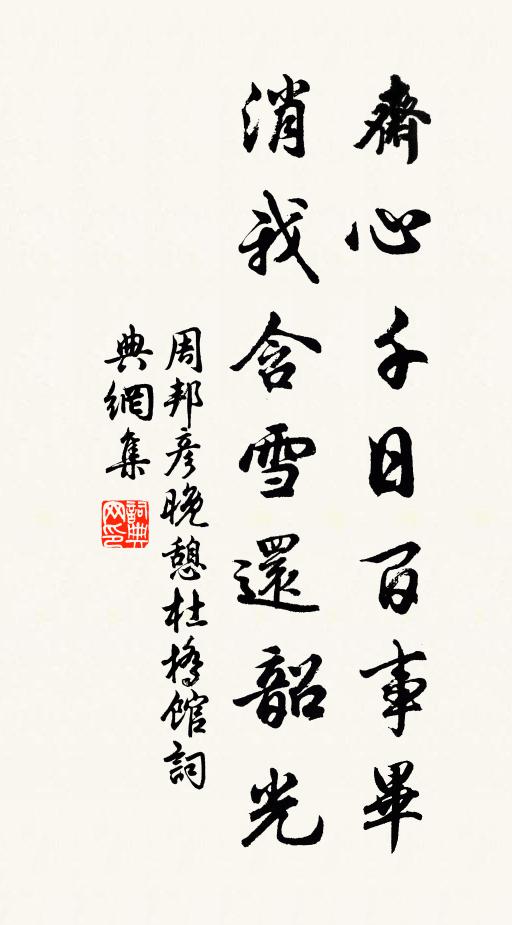 齋心千日百事畢
消我含雪還韶光
周邦彦晚憩杜橋館詞
典網集
詞典網印